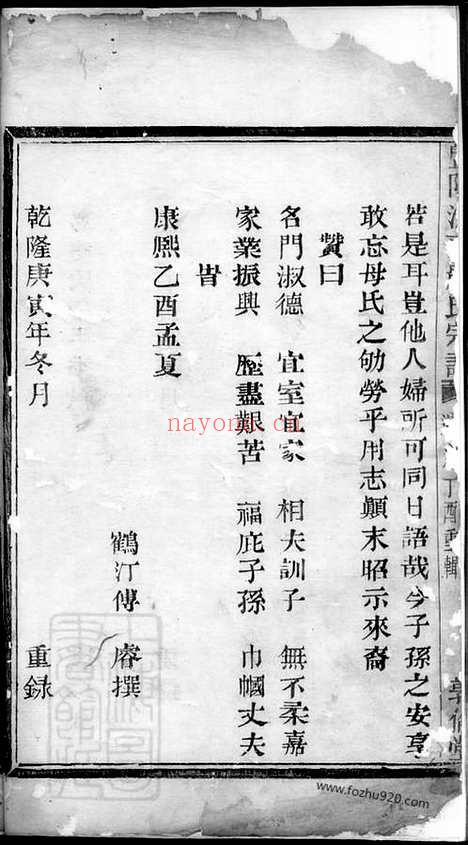 若是耳豈他人婦所可同日語哉今子孫之安享
敢忘母氏之劬勞乎用志顛末昭示來裔
贊曰
名門淑德 宜室宜家 相夫訓子 無不柔嘉
家業振興 歷盡艱苦 福庇子孫 巾幗丈夫
旹
康熙乙酉孟夏
鶴汀傅 睿撰
乾隆庚寅年冬月 重録
氏宗譜
丁酉重輯
nayona.cn
www.fozhu920.com